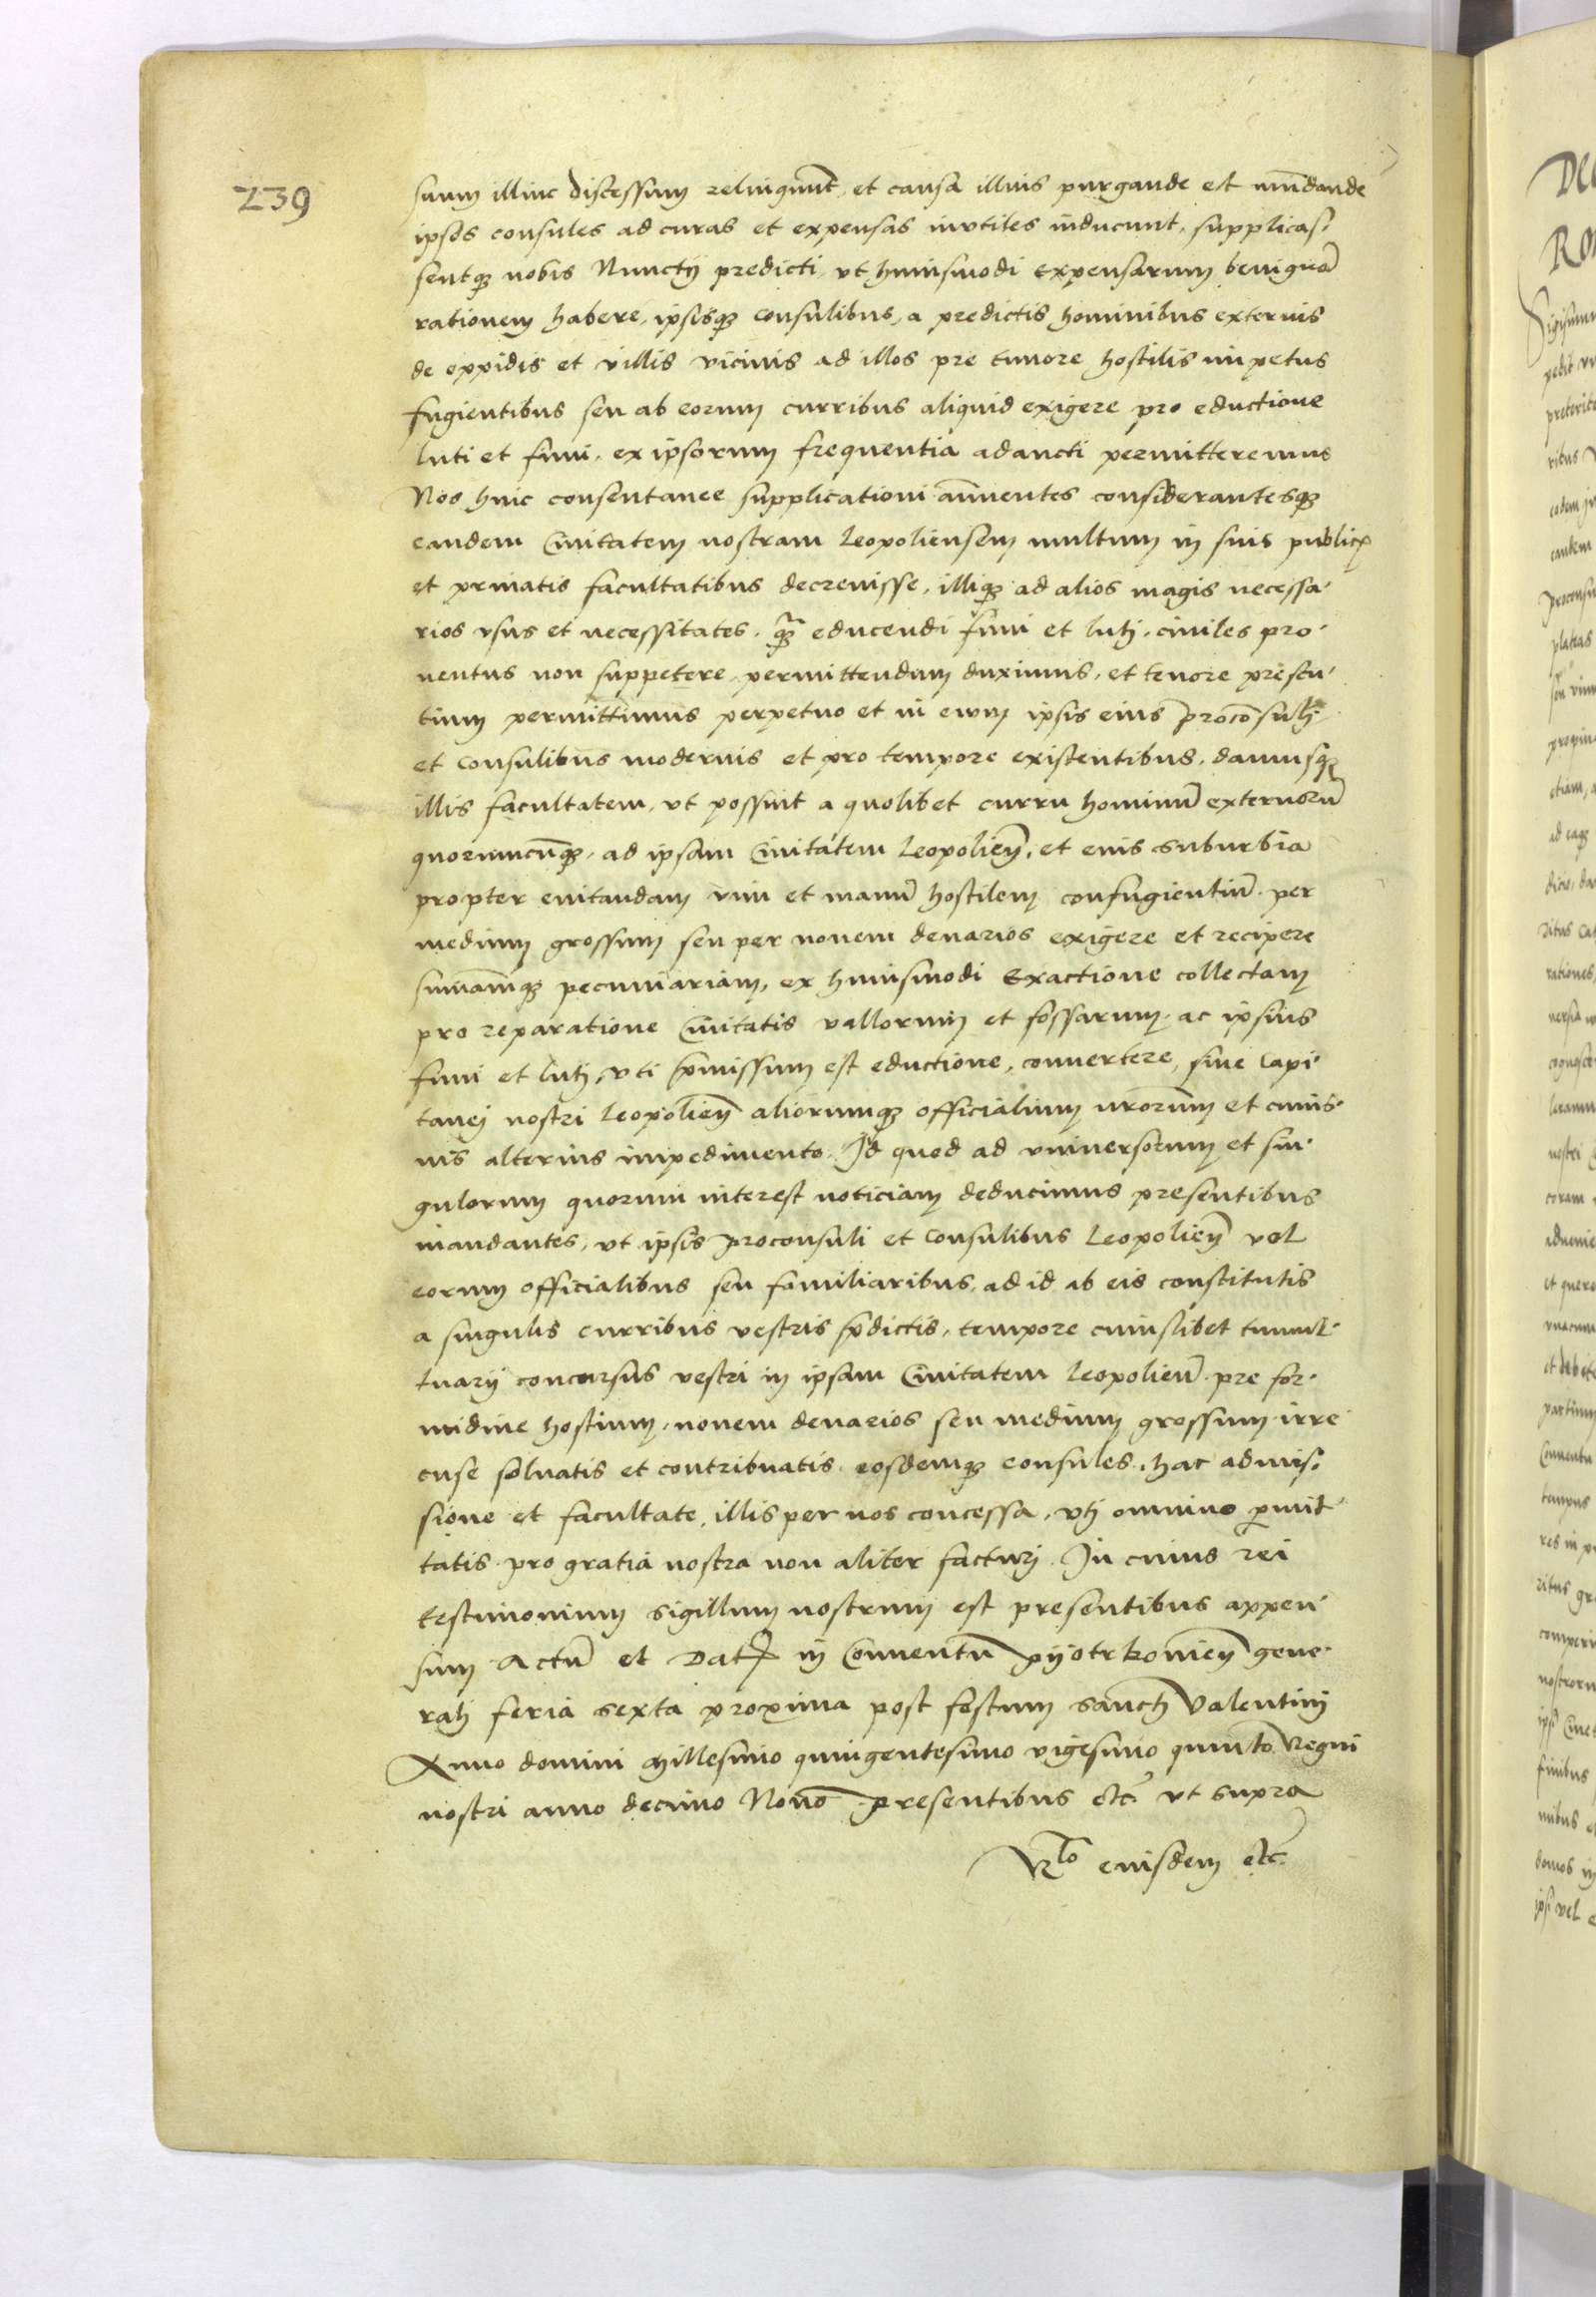 239
suum illinc discessum relinqunt, et causa illius purgande et mundande
ipsos consules ad curas et expensas inutiles inducunt, supplicas-
sentq3 nobis Nunctij predicti, vt huiusmodi expensarum benignā
rationem habere, ipsisq3 consulibus, a predictis hominibus externis
de oppidis et villis vicinis ad illos pre timore hostilis impetus
fugientibus seu ab eorum curribus aliquid exigere pro eductione
luti et fimi, ex ipsorum frequentia adaucti permitteremus
Nos huic consentanee supplicationi annuentes considerantesq3
eandem Ciuitatem nostram Leopoliensem multum in suis publicꝭ
et priuatis facultatibus decreuisse, illiq3 ad alios magis necessa-
rios vsus et necessitates, q̄3 educendi fimi et luti, ciuiles pro-
uentus non suppetere, permittendum duximus, et tenore presen-
tium permittimus perpetuo et in ewm ipsis eius proconsuli
et Consulibus modernis et pro tempore existentibus, damusq3
illis facultatem, vt possint a quolibet curru hominū externorū
quorumcūq3, ad ipsam Ciuitatem Leopolieñ, et eius suburbia
propter euitandam vim et manū hostilem confugientiū, per
medium grossum seu per nouem denarios exigere et recipere
sumāmq3 pecuniariam, ex huiusmodi Exactione collectam
pro reparatione Ciuitatis vallorum et fossarum, ac ipsius
fimi et luti, vti p̄missum est eductione, conuertere, sine Capi-
tanei nostri Leopolieñ aliorumq3 officialium nrorum et cuius-
uis alterius impedimento. Id quod ad vniuersorum et sin-
gulorum quorum interest noticiam deducimus presentibus
mandantes, vt ipsis proconsuli et Consulibus Leopolieñ vel
eorum officialibus seu familiaribus, ad id ab eis constitutis
a singulis curribus vestris p̄dictis, tempore cuiuslibet tumul-
tuarij concursus vestri in ipsam Ciuitatem Leopolieñ pre for-
midine hostium, nouem denarios seu medium grossum irre
cuse soluatis et contribuatis, eosdemq3 consules, hac admis-
sione et facultate, illis per nos concessa, vti omnino p̄mit-
tatis pro gratia nostra non aliter facturi. In cuius rei
testimonium sigillum nostrum est presentibus appen-
sum Actū et Datꝭ in Conuentu pijotrkouieñ gene-
rali feria sexta proxima post festum sancti Valentini
Anno domini Millesimo quingentesimo vigesimo quinto Regni
nostri anno decimo Nono presentibus etc̄ vt supra
Rlo eiusdem etc̄